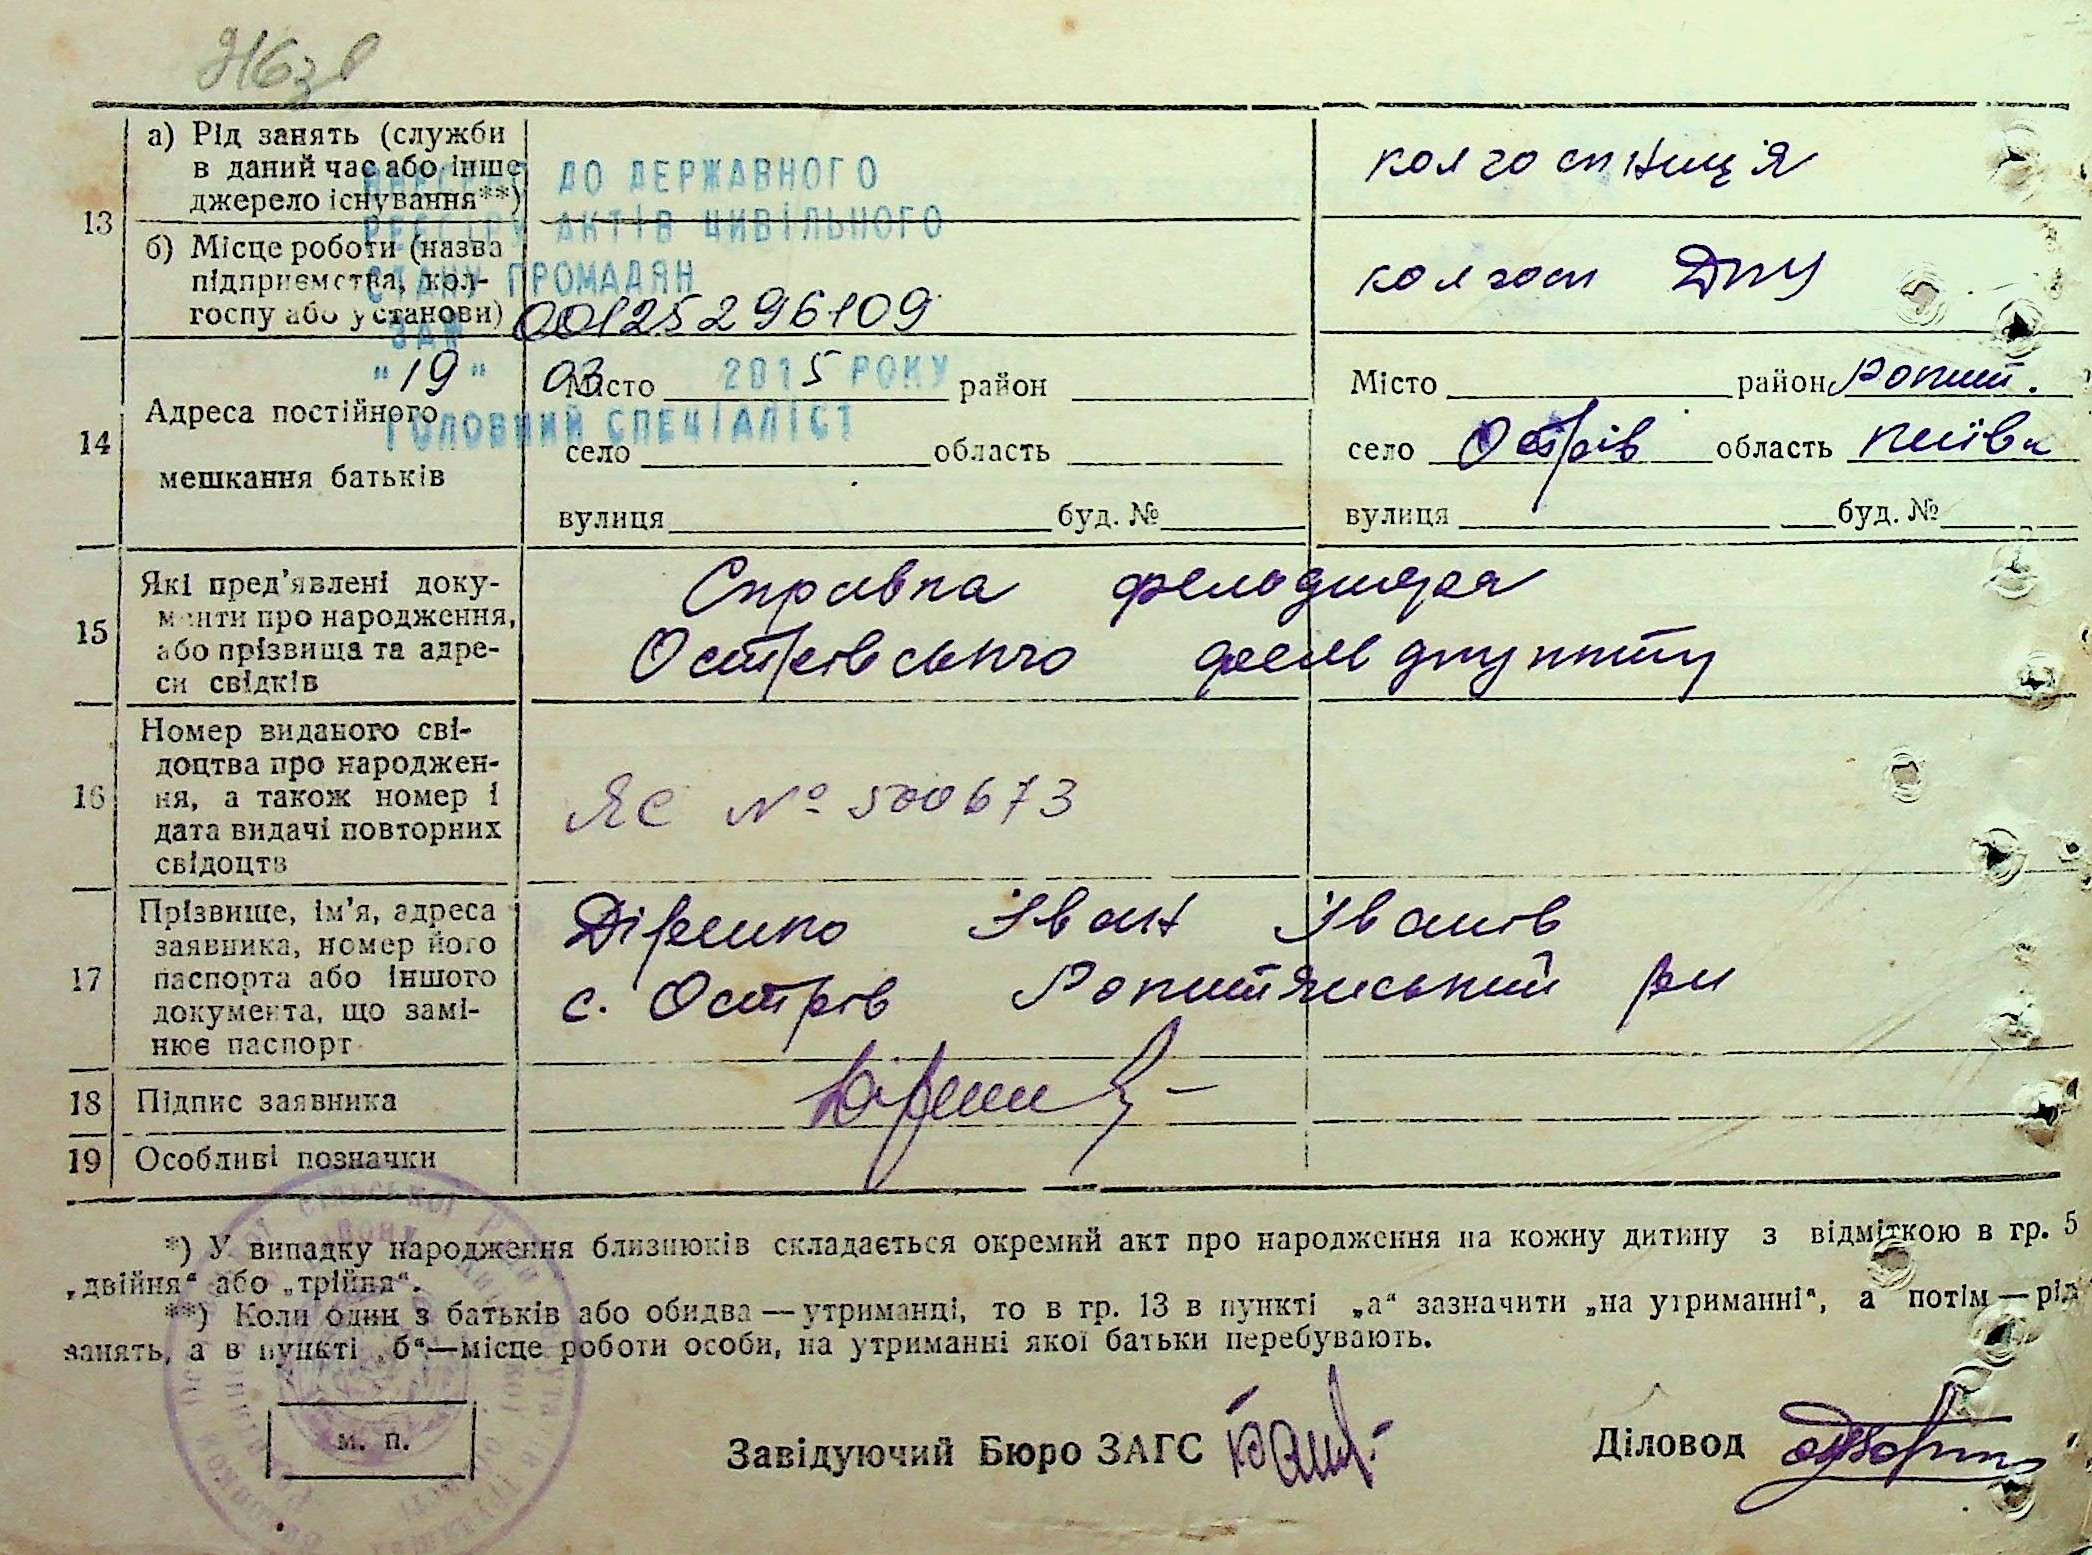 13
а) Рід занять (служби
в даний час або інше
джерело існування**)
колгоспниця
ВНЕСЕНО ДО ДЕРЖАВНОГО
РЕЄСТРУ АКТІВ ЦИВІЛЬНОГО
СТАНУ ГРОМАДЯН
ЗА №
00125296109
"19" 03 2015 РОКУ
ГОЛОВНИЙ СПЕЦІАЛІСТ
б) Місце роботи (назва
підприємства, кол-
госпу або установи)
колгосп ДПУ
14
Адреса постійного
мешкання батьків
Місто район
село область
вулиця буд. №
Місто район Рокит.
село Острів область Київс
вулиця буд. №
15
Які пред’явлені доку-
менти про народження,
або прізвища та адре-
си свідків
Справка фельдшера
Острівського фельдпункту
16
Номер виданого сві-
доцтва про народжен-
ня, а також номер і
дата видачі повторних
свідоцтв
ЯС № 500673
17
Прізвище, ім’я, адреса
заявника, номер його
паспорта або іншого
документа, що замі-
нює паспорт
Діренко Іван Іванов
с. Острів Рокитянський рн
18
Підпис заявника
19
Особливі позначки
*) У випадку народження близнюків складається окремий акт про народження на кожну дитину з відміткою в гр. 5
„двійня“ або „трійня“.
**) Коли один з батьків або обидва — утриманці, то в гр. 13 в пункті „а“ зазначити „на утриманні“, а потім — рід
занять, а в пункті „б“—місце роботи особи, на утриманні якої батьки перебувають.
м. п.
Завідуючий Бюро ЗАГС
Діловод